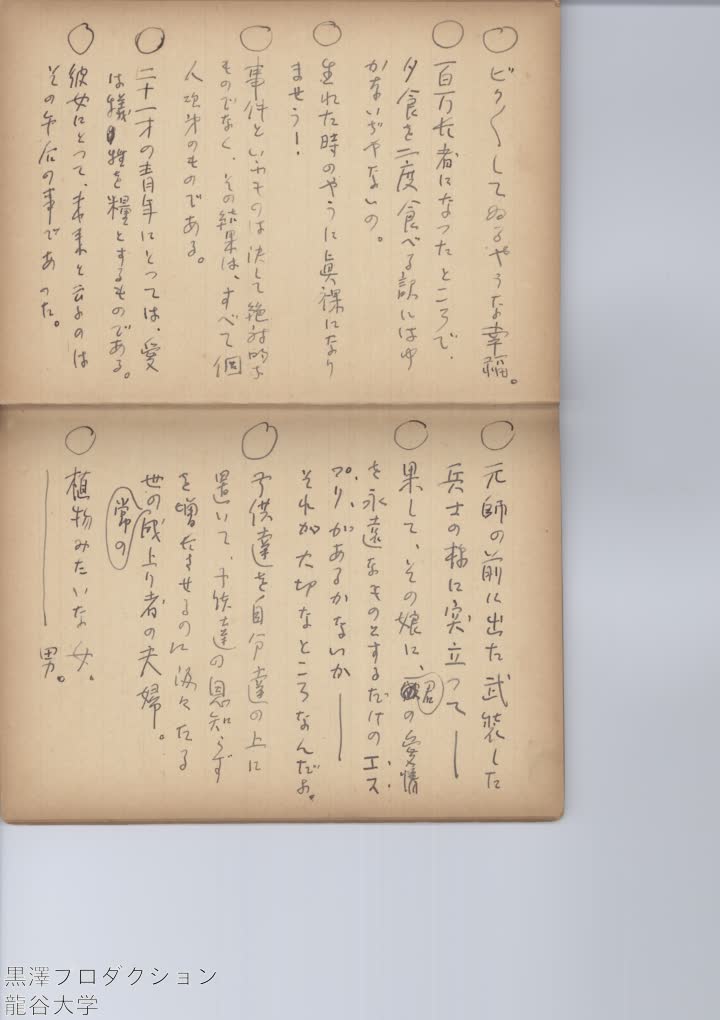 ○ ビク〱してゐるやうな幸福。
○ 百万長者になつたところで、
夕食を二度食べる訳にはゆ
かないぢやないの。
○ 生れた時のやうに眞裸になり
ませう！
○ 事件といふものは決して絶対的な
ものでなく、その結果は、すべて個
人次第のものである。
○ 二十一才の青年にとつては、愛
は犠牲を糧とするものである。
○ 彼女にとつて、未来と云ふのは
その午后の事であつた。
○ 元師の前に出た武装した
兵士の様に突立つて──
○ 果して、その娘に、君の愛情
を永遠なものとするだけのエス
プリがあるかないか──
それが大切なところなんだよ。
○ 子供達を自分達の上に
置いて、子供達の恩知らず
を増長させるのに汲々たる
世の常の成上り者の夫婦。
○ 植物みたいな女。
──── 男。
黒澤プロダクション
龍谷大学